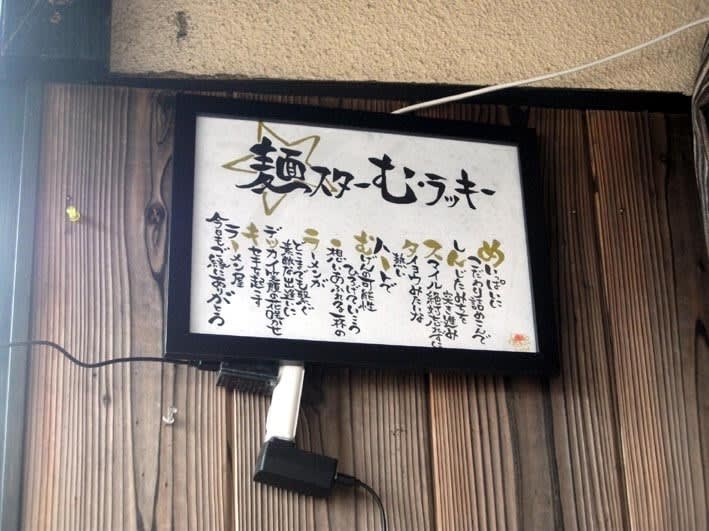 麺スターむ・ラッキー
めいっぱいに
こだわり詰めこんで
しんじた
突き進み
スマイル絶対忘れずに
タイヨウみたいな
熱い
ハートで
むげんの可能性
ひろげていこう
想いあふれる一杯の
ラーメンが
どこまでも繋ぐ
素敵な出逢いに
デッカイ笑顔の花咲かせ
キセキを起こす
ラーメン屋
今日もご縁にありがとう